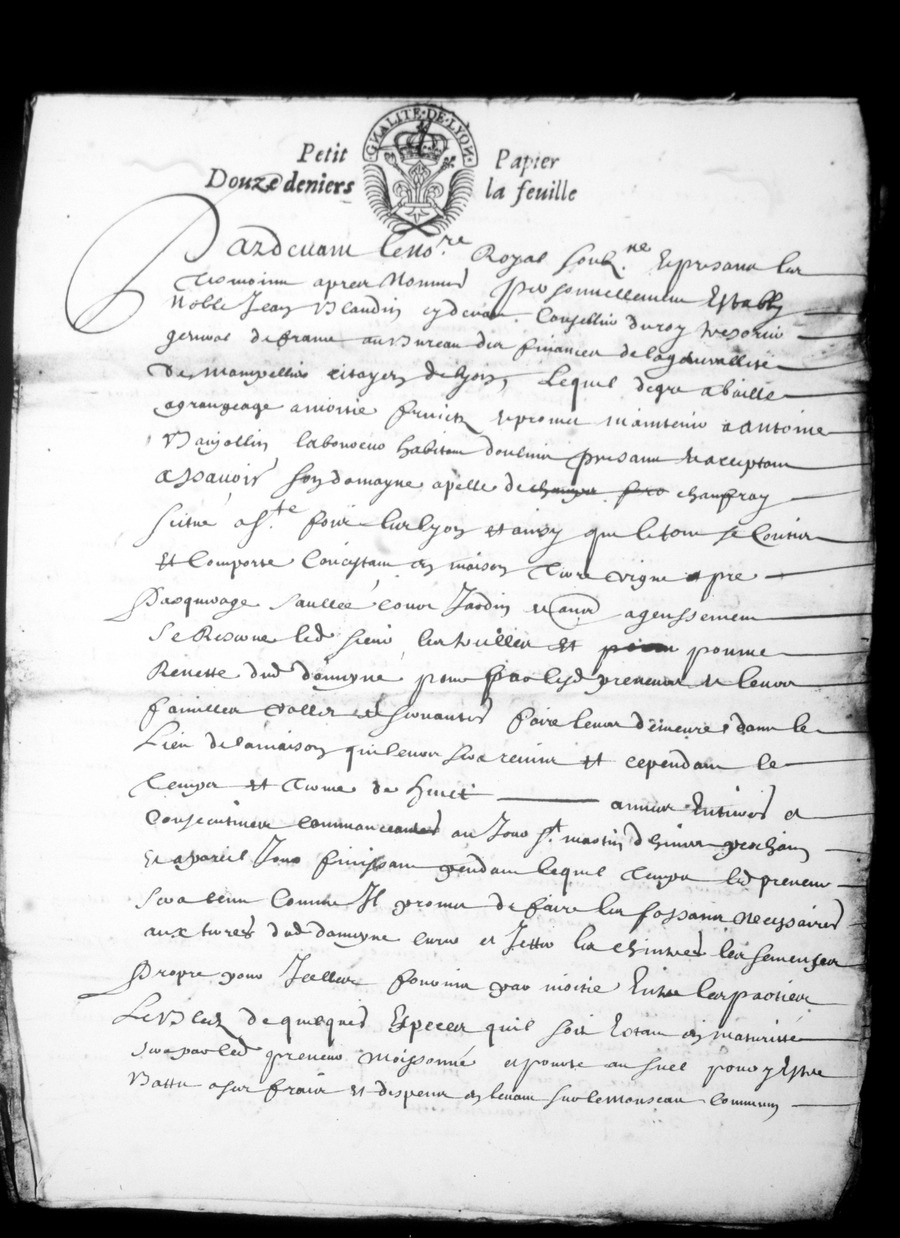 GNALITE·DE·LYON
Petit Papier
Douze deniers la feuille
Pardevant le no.re Royal soubz.ne et present les
Tesmoins apres Nommes personnellement Estably
Noble Jean Blandin cydevant Conseillier du roy tresorier
general de france au Bureau des finances de la generallité
De Montpellier citoyen de lyon, Lequel de gré a baillé
a grangeage a moitié fruictz et promet maintenir a Antoine
laboureur habitant present et acceptant
Assavoir son domayne apellé de chanfray
scitué a S.te foix les lyon et ainsy que le tout se Contient
Et Comporte Concistant en maison Terre vigne pre
Pasquerage saullée cour Jardin et aussy agenssement
Se Reserve led sieur les et pomme
Renette dud domayne pour par led preneur et leurs
familles valletz et servantes faire leurs demeure dans le
Lieu de la maison qui leur sera et cependant le
Temps et Terme de huict annees Entieres et
Consecutives commanceantes au Jour S.t martin d'hiver prochain
Et a pareil Jour finissant pendant lequel Temps led preneur
Sera tenu Comme Il promet de faire les fossures necessaires
aux terres dud domayne et Jetter les les semences
Propre pour Icelles fournir par moitié Entre les parties
Le Bledz de quelques Especes quil soit Estant en maturitté
sera par led preneur moissonné et pour y Estre
Battu a ses fraix et despens en levant sur le monseau Commun